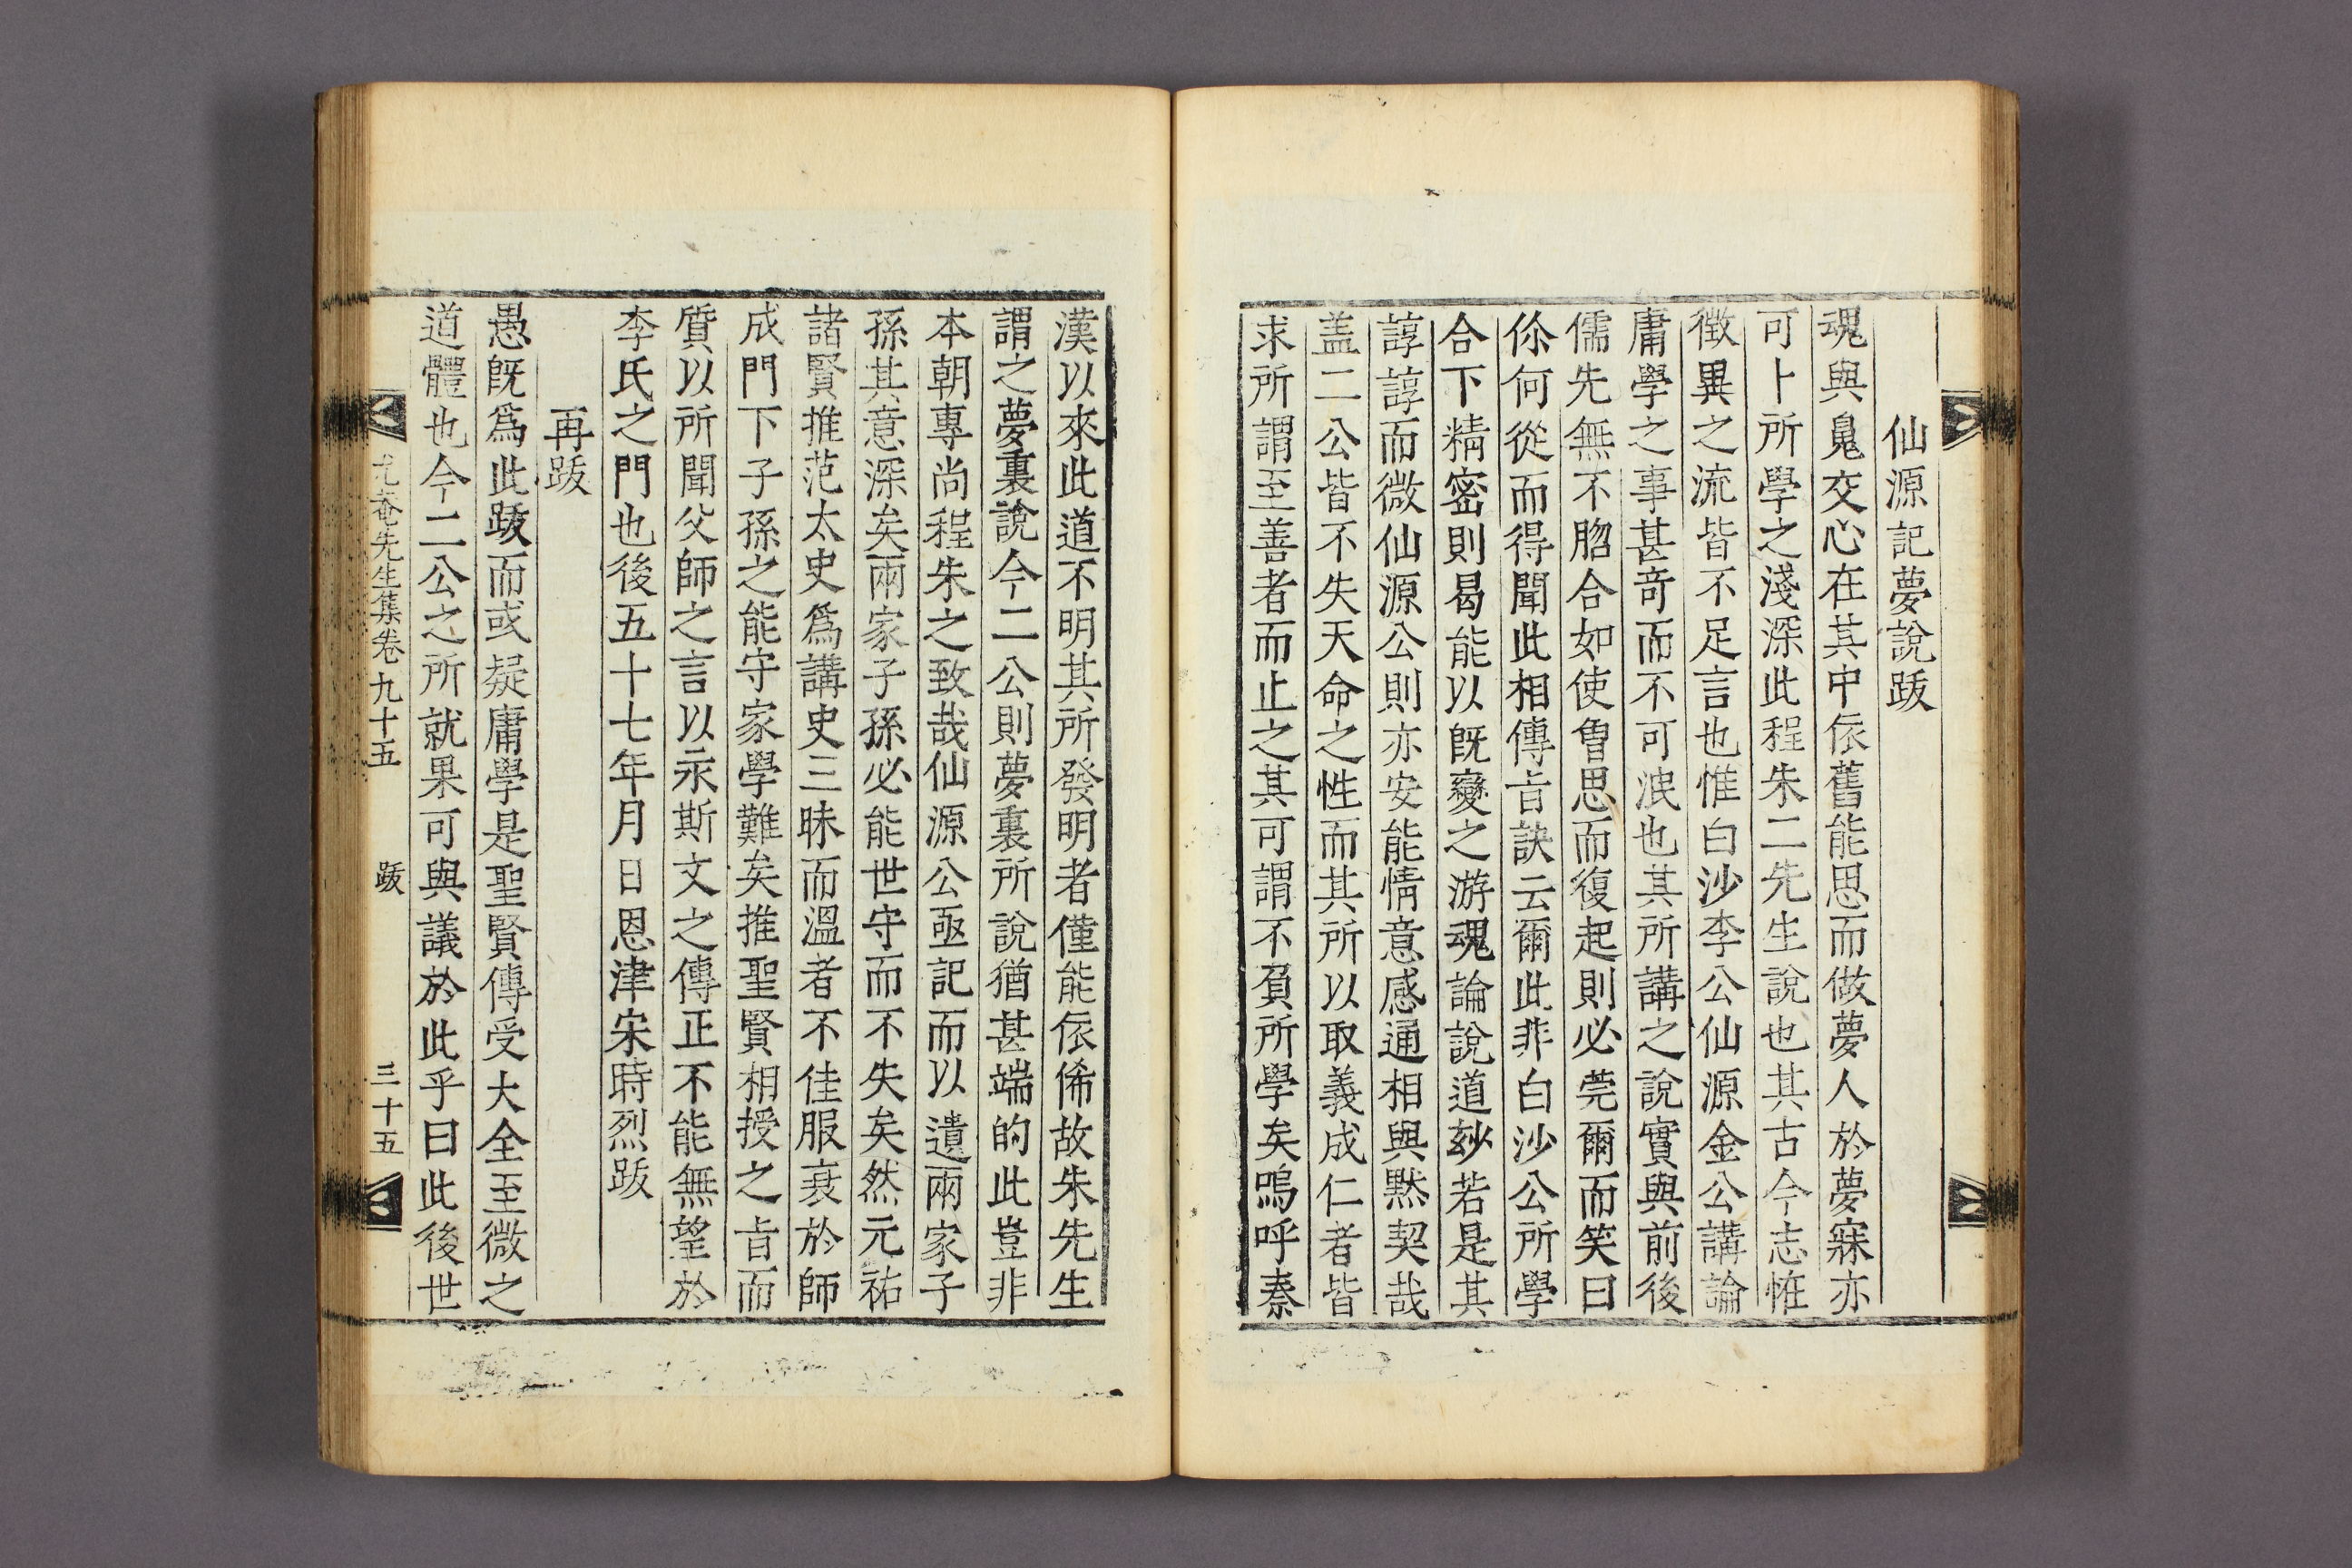 仙源記夢說跋
魂與鬼交心在其中依舊能思而做夢人於夢寐亦
可卜所學之淺深此程朱二先生說也其古今志恠
徵異之流皆不足言也惟白沙李公仙源金公講論
庸學之事甚奇而不可泯也其所講之說實與前後
儒先無不脗合如使曾思而復起則必莞爾而笑曰
你何從而得聞此相傳旨訣云爾此非白沙公所學
合下精密則曷能以旣變之游魂論說道玅若是其
諄諄而微仙源公則亦安能情意感通相與默契哉
盖二公皆不失天命之性而其所以取義成仁者皆
求所謂至善者而止之其可謂不負所學矣嗚呼秦
漢以來此道不明其所發明者僅能依俙故朱先生
謂之夢裏說今二公則夢裏所說猶甚端的此豈非
本朝專尙程朱之致哉仙源公亟記而以遺兩家子
孫其意深矣兩家子孫必能世守而不失矣然元祐
諸賢推范太史爲講史三昧而溫者不佳服衰於師
成門下子孫之能守家學難矣推聖賢相授之旨而
質以所聞父師之言以永斯文之傳正不能無望於
李氏之門也後五十七年月日恩津宋時烈跋
再跋
愚旣爲此跋而或疑庸學是聖賢傳受大全至微之
道體也今二公之所就果可與議於此乎曰此後世
尤菴先生集卷九十五 跋 三十五